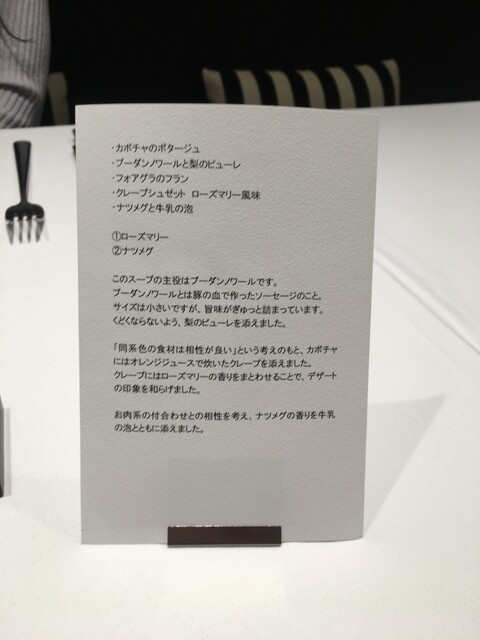 ・カボチャのポタージュ
・ブーダンノワールと梨のピューレ
・フォアグラのフラン
・クレープシュゼット ローズマリー風味
・ナツメグと牛乳の泡
①ローズマリー
②ナツメグ
このスープの主役はブーダンノワールです。
ブーダンノワールとは豚の血で作ったソーセージのこと。
サイズは小さいですが、旨味がぎゅっと詰まっています。
くどくならないよう、梨のピューレを添えました。
「同系色の食材は相性が良い」という考えのもと、カボチャ
にはオレンジジュースで炊いたクレープを添えました。
クレープにはローズマリーの香りをまとわせることで、デザート
の印象を和らげました。
お肉系の付合わせとの相性を考え、ナツメグの香りを牛乳
の泡とともに添えました。